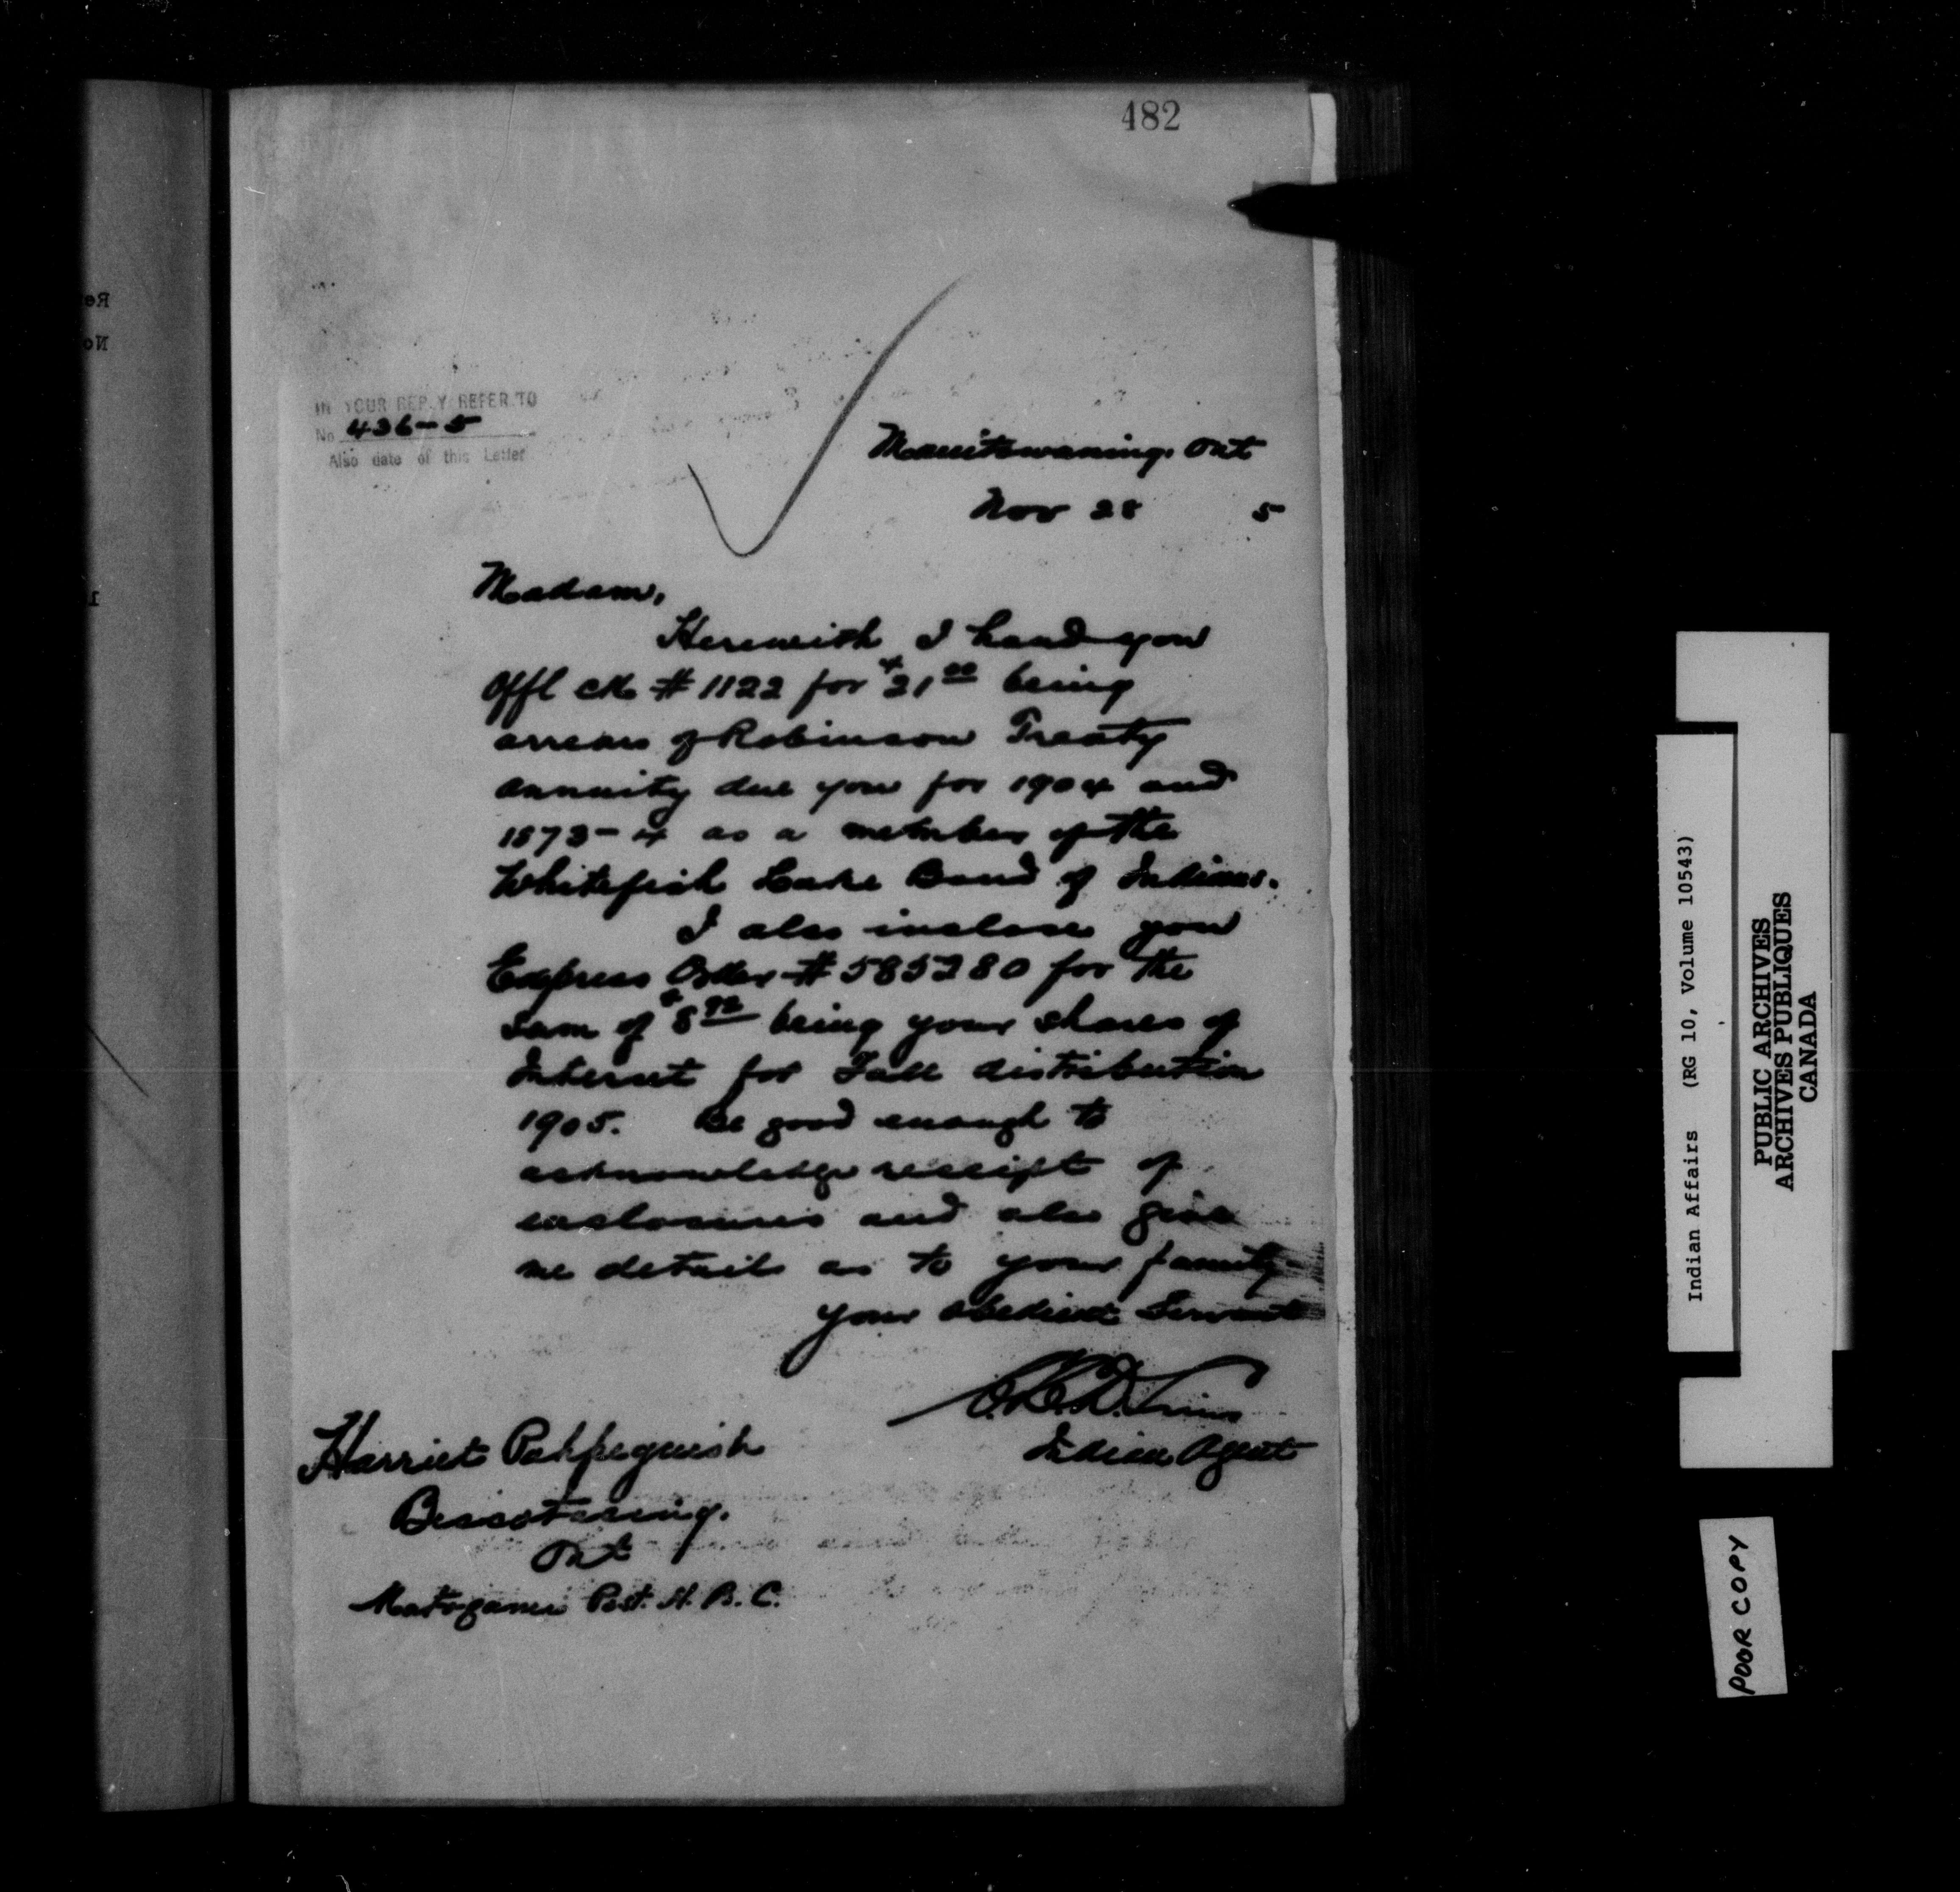 482
IN YOUR REPLY REFER TO
No 436-5
Also date of this Letter
Manitowaning. Ont
Nov 28 5
Madam,
Herewith I hand you
Offl ck # 1122 for $21 00 being
arrears of Robinson Treaty
annuity due you for 1904 and
1873-4 as a member of the
Whitefish Lake Band of Indians.
I also inclose you
Express Order # 585280 for the
sum of $8 being your shares of
Interest for Fall distribution
1905. Be good enough to
acknowledge receipt of
enclosures and also give
me details as to your family
your obedient Servant
Indian Agent
Harriet Pahpeguish
Bissotasing.
Ont
Matogama Post. H. B. C.
Indian Affairs (RG 10, Volume 10543)
PUBLIC ARCHIVES
ARCHIVES PUBLIQUES
CANADA
POOR COPY